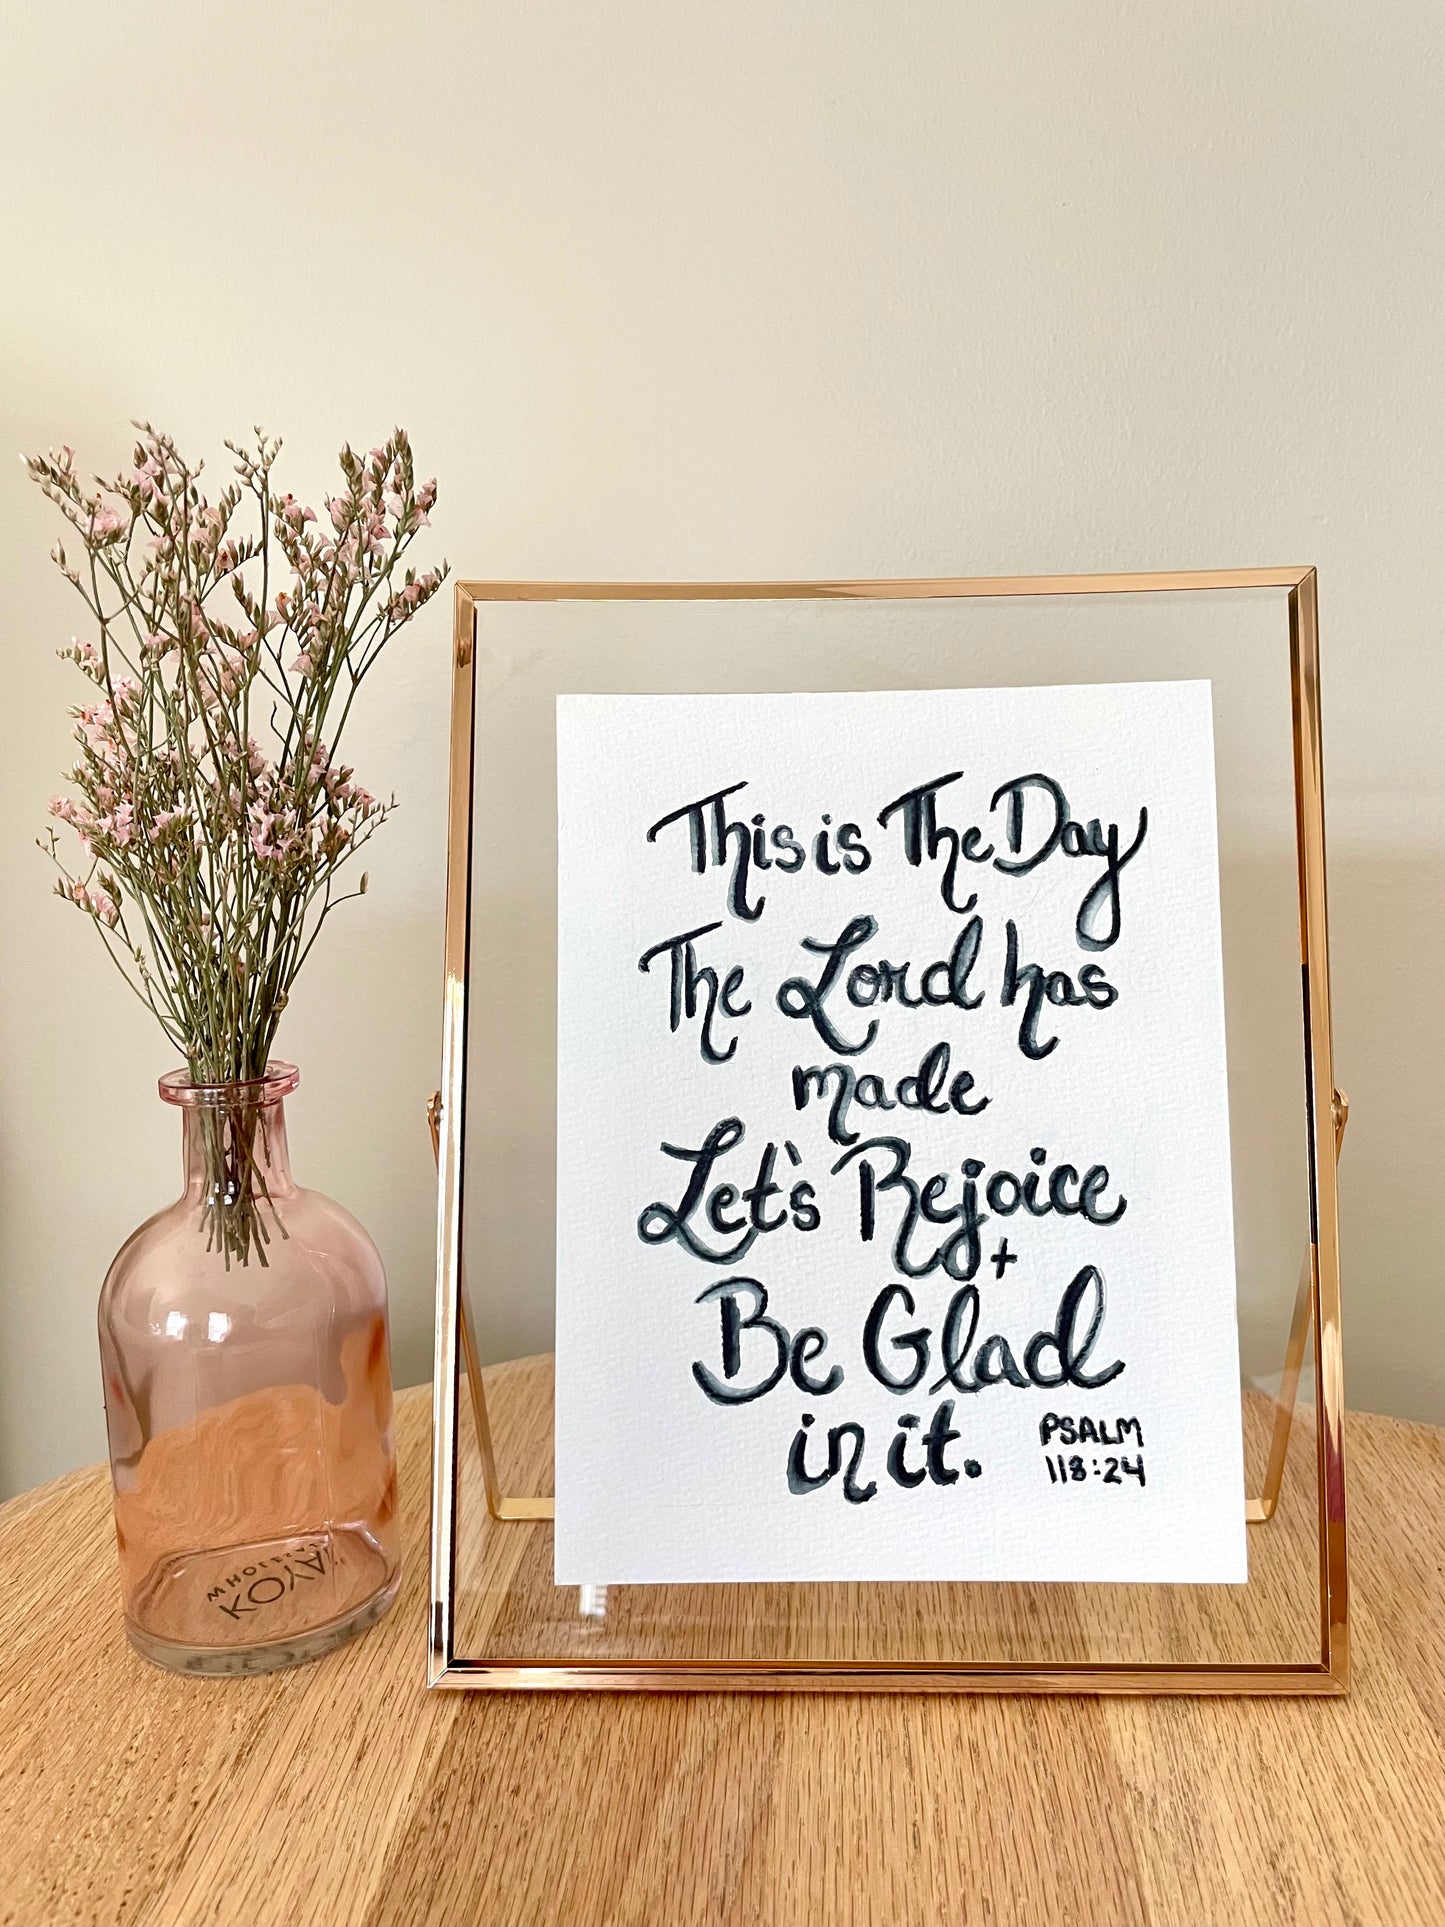 This is The Day
The Lord has
made
Let's Rejoice
+
Be Glad
in it.
PSALM
118:24
KOYAL
WHOLESALE